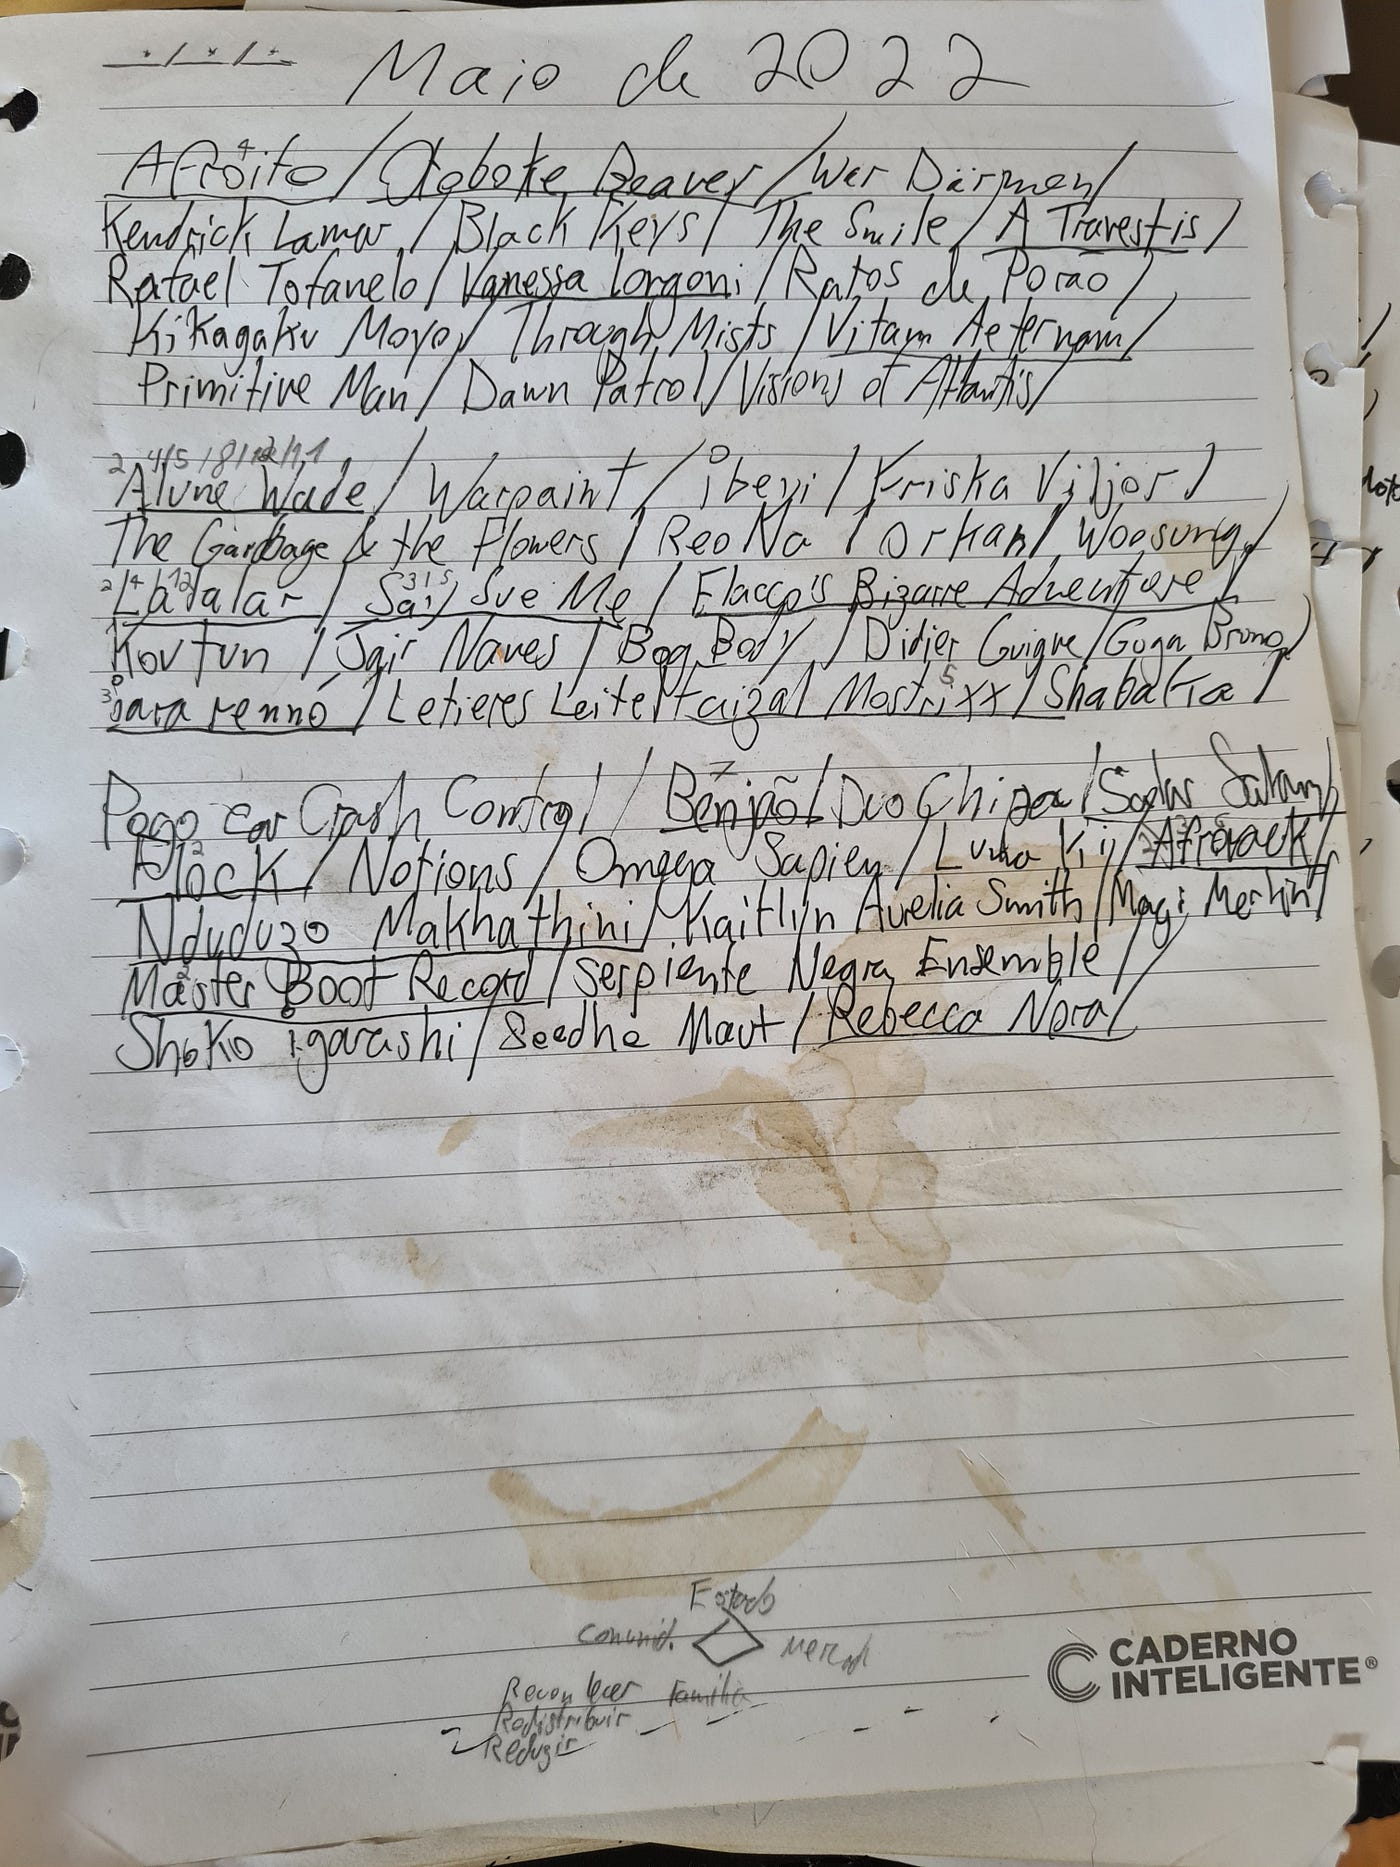 Maio de 2022
Afroito / Otoboke Beaver / Wer Därmen /
Kendrick Lamar / Black Keys / The Smile / A Travestis /
Rafael Tofanelo / Vanessa Longoni / Ratos de Porão /
Kikagaku Moyo / Through Mists / Vitam Aeternam /
Primitive Man / Dawn Patrol / Visions of Atlantis /
Alune Wade / Warpaint / ibeyi / Kriska Viljor /
The Garbage & the Flowers / ReoNa / Orkan / Woosung /
Làtalar / Sai / Sue Me / Flacco's Bizarre Adventure /
Kovtun / Jair Naves / Bog Body / Didier Guigue / Guga Bruno /
sara renno / Letieres Leite / taizal Mostrixx / Shabaka /
Pogo car Crash Control / Benjão / Duo Chipa /
Block / Notions / Omega Sapien / Afrorack /
Nduduzo Makhathini / Kaitlyn Aurelia Smith / Magi Merlin /
Master Boot Record / Serpiente Negra Ensemble /
Shoko igarashi / Seedhe Maut / Rebecca Nora /
Estado
Comunid. Mercad
Reconhecer Família
Redistribuir
Reduzir
CADERNO
INTELIGENTE®